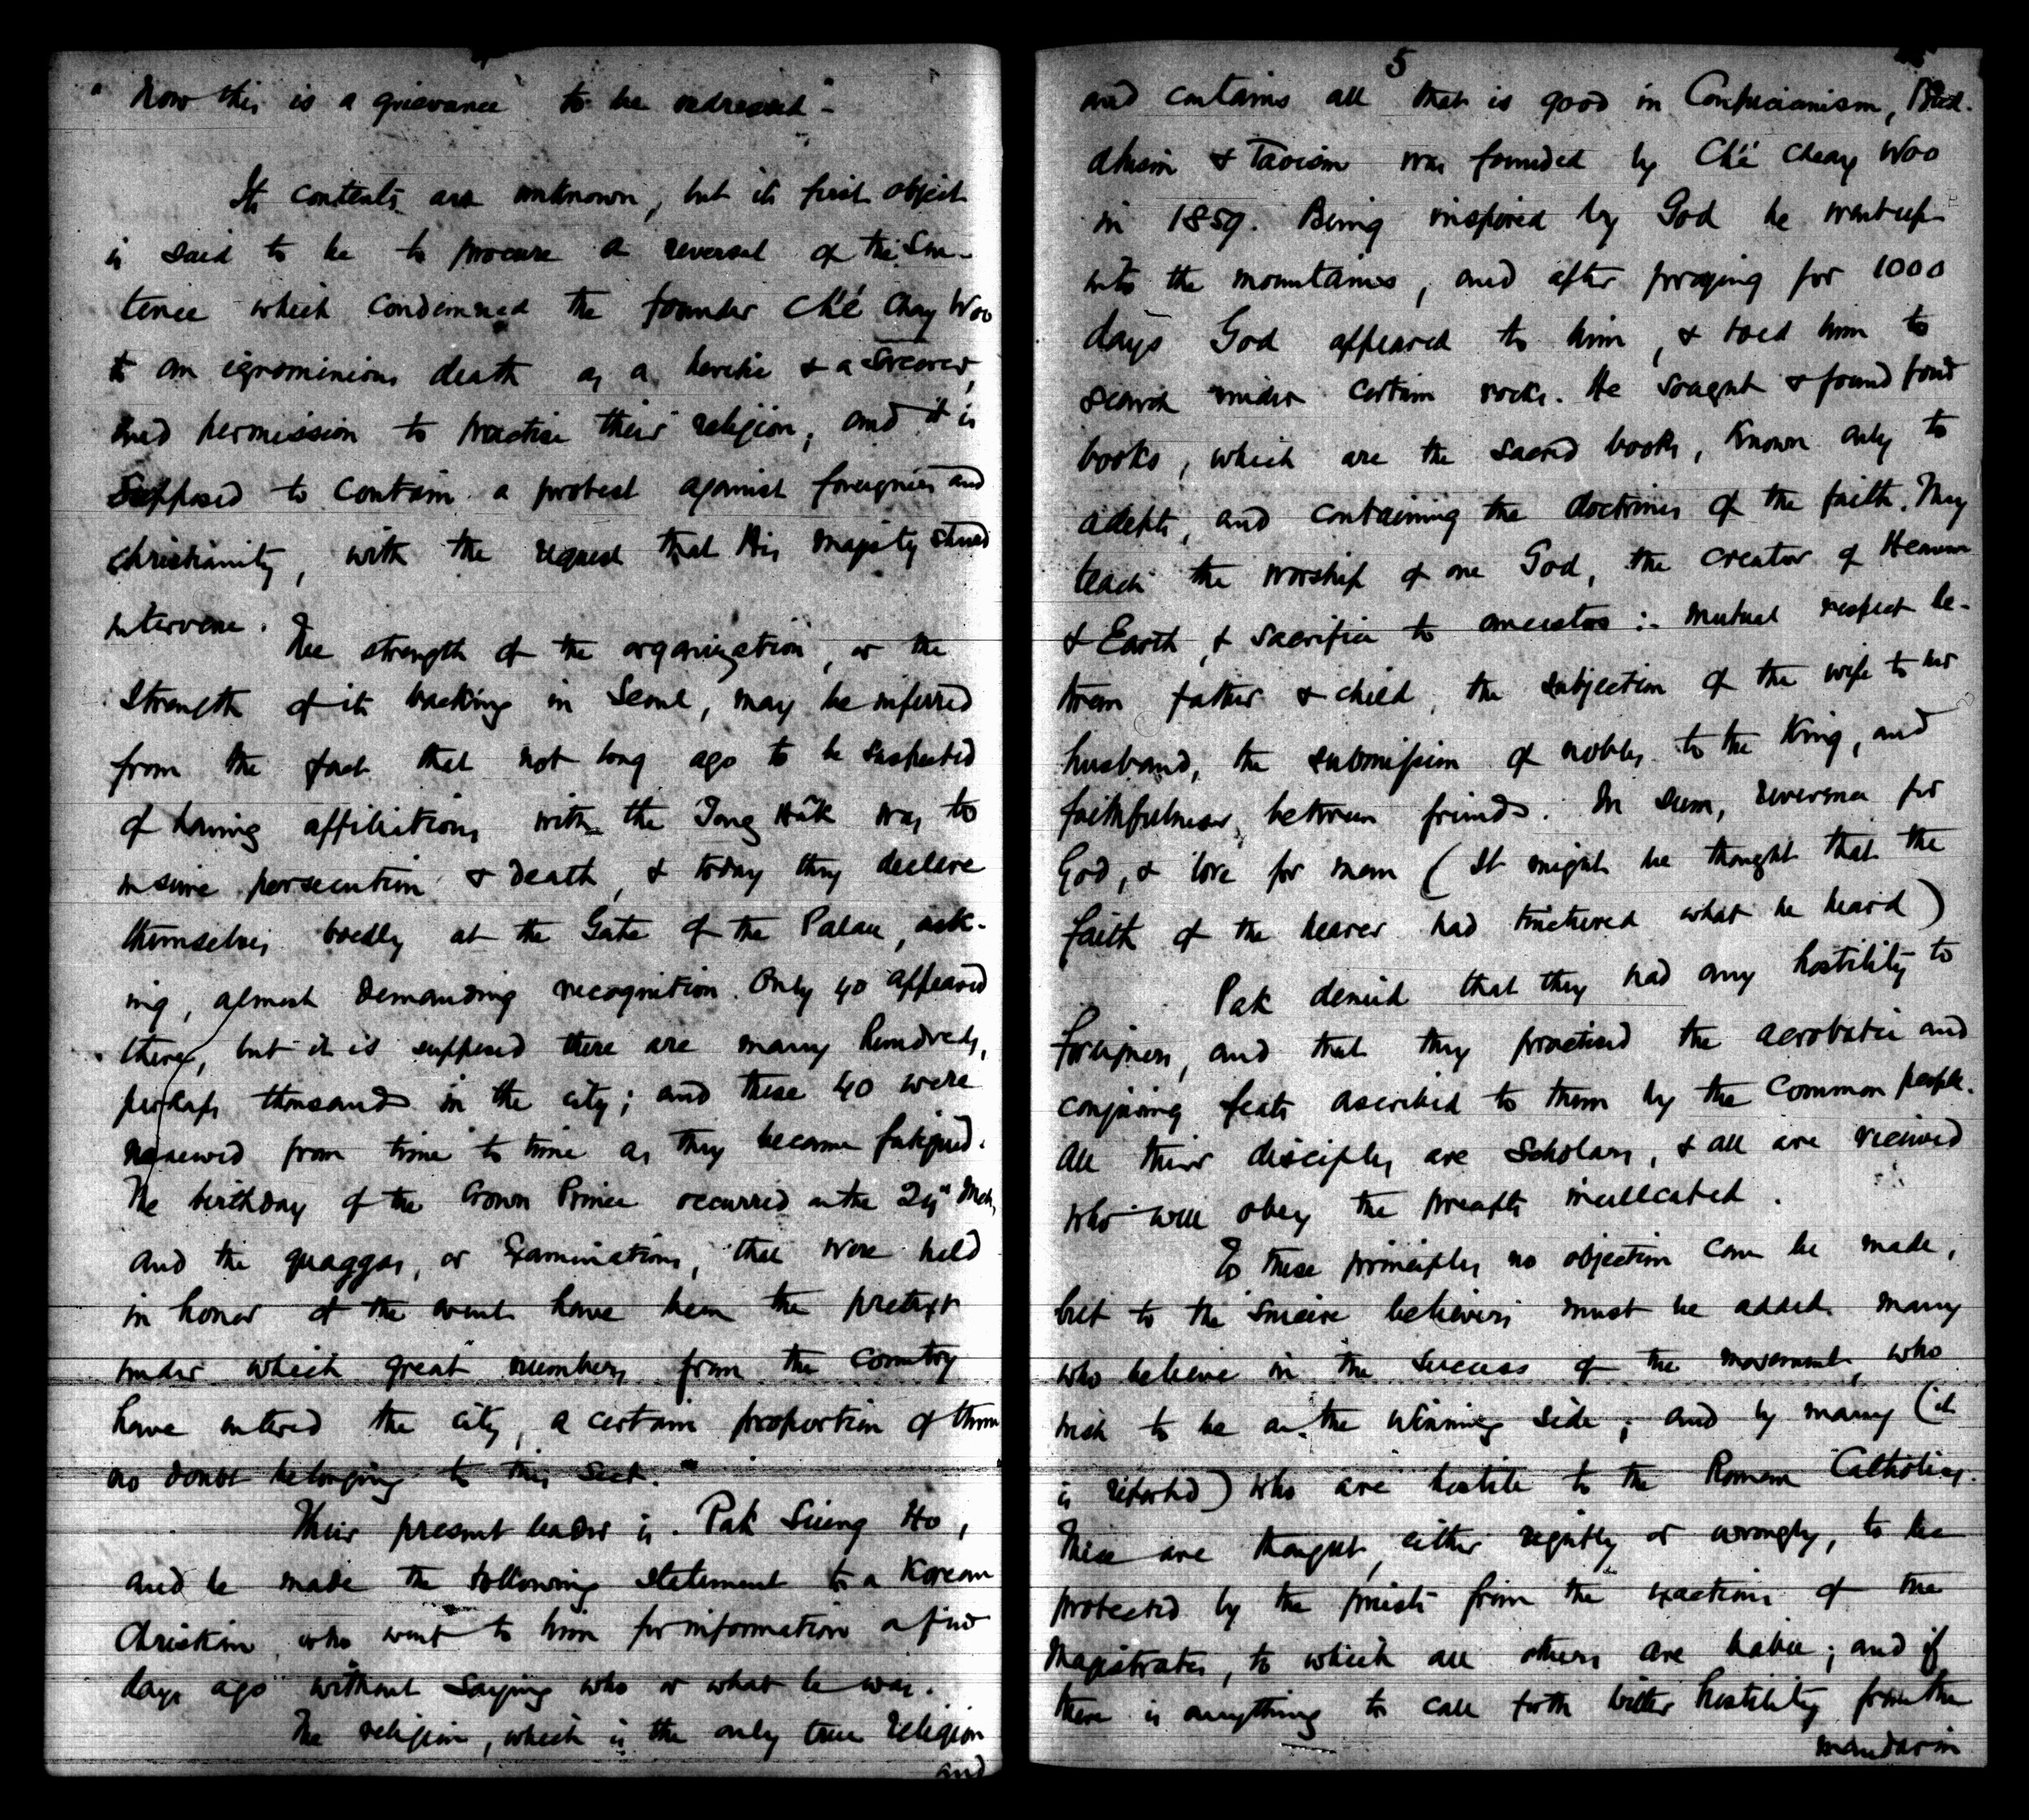 " Now this is a grievance to be redressed "-
Its contents are unknown, but its first object
is said to be to procure a reversal of the Sen-
tence which condemned the founder Ché Chay Woo
to an ignominious death as a heretic & a Sorcerer,
and permission to practise their religion; and it is
Supposed to contain a protest against foreigners and
Christianity, with the request that His Majesty should
intervene.
The strength of the organization, or the
Strength of its backing in Seoul, may be inferred
from the fact that not long ago to be suspected
of having affiliations with the Tong Hâk was to
insure persecution & death, & today they declare
themselves boldly at the Gate of the Palace, ask-
ing, almost demanding recognition. Only 40 appeared
there, but it is supposed there are many hundreds,
perhaps thousands in the city; and these 40 were
renewed from time to time as they became fatigued.
The birthday of the Crown Prince occurred on the 24" Mch,
and the quaggas, or Examinations, that were held
in honor of the event have been the pretext
under which great numbers from the Country
have entered the city, a certain proportion of them
no doubt belonging to this Sect.
Their present leader is Pak Sueng Ho,
and he made the following statement to a Korean
Christian, who went to him for information a few
days ago without Saying who or what he was.
The religion, which is the only true religion
and
5
and contains all that is good in Confucianism, Bud-
dhism & Taoism was founded by Ché Cheay Woo
in 1859. Being inspired by God he went up
into the mountains, and after praying for 1000
days God appeared to him, & told him to
search under certain rocks. He sought & found four
books, which are the Sacred books, known only to
adepts, and containing the doctrines of the faith. They
teach the worship of one God, the creator of Heaven
& Earth, & Sacrifice to ancestors :- mutual respect be-
tween father & child, the subjection of the wife to her
husband, the submission of nobles to the King, and
faithfulness between friends. In sum, reverence for
God, & love for man (It might be thought that the
faith of the hearer had tinctured what he heard)
Pak denied that they had any hostility to
foreigners, and that they practised the acrobatic and
conjuring feats ascribed to them by the common people.
All their disciples are Scholars, & all are received
who will obey the precepts inculcated.
To these principles no objection can be made,
but to the Sincere believers must be added many
who believe in the Success of the movement, who
wish to be on the winning side; and by many (it
is reported) who are hostile to the Roman Catholics.
These are thought, either rightly or wrongly, to be
protected by the priests from the exactions of the
Magistrates, to which all others are liable; and if
there is anything to call forth bitter hostility from the
mandarin